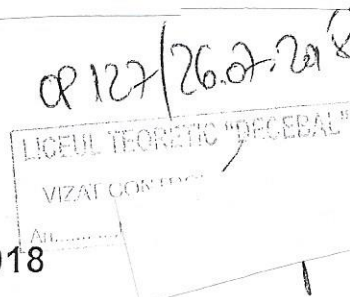 OP 127/26.07.2018
LICEUL TEORETIC "DECEBAL"
VIZAT CONT
An.........
018